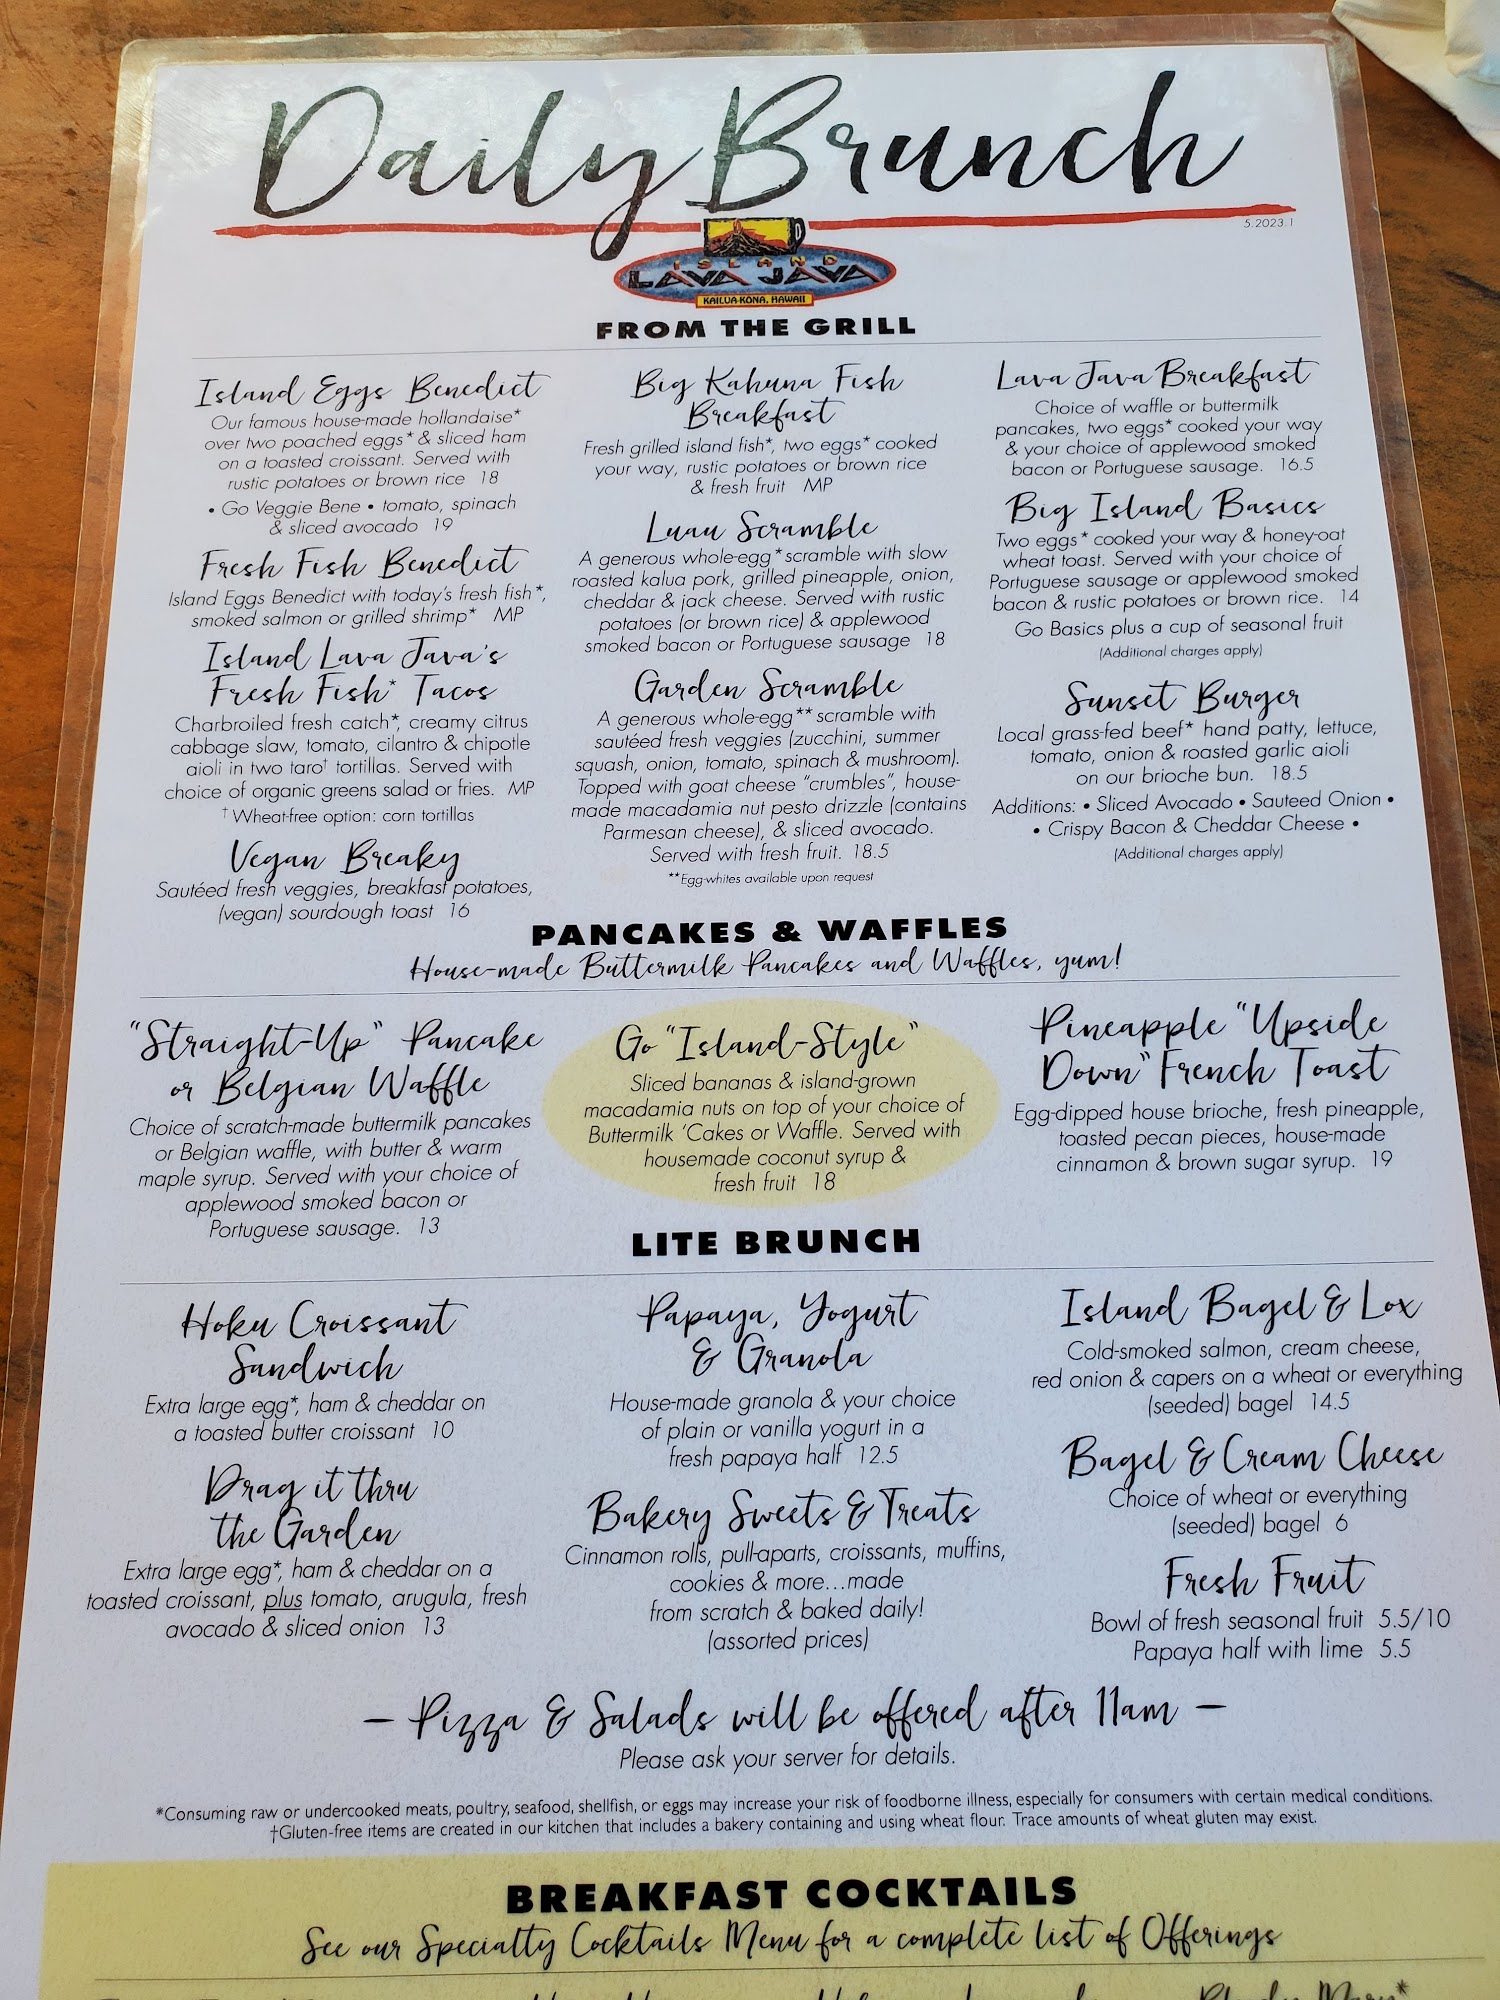 Daily Brunch
5.2023.1
ISLAND
LAVA JAVA
KAILUA-KONA, HAWAII
FROM THE GRILL
Island Eggs Benedict
Our famous house-made hollandaise*
over two poached eggs* & sliced ham
on a toasted croissant. Served with
rustic potatoes or brown rice 18
• Go Veggie Bene • tomato, spinach
& sliced avocado 19
Fresh Fish Benedict
Island Eggs Benedict with today's fresh fish*,
smoked salmon or grilled shrimp* MP
Island Lava Java's
Fresh Fish* Tacos
Charbroiled fresh catch*, creamy citrus
cabbage slaw, tomato, cilantro & chipotle
aioli in two taro† tortillas. Served with
choice of organic greens salad or fries. MP
† Wheat-free option: corn tortillas
Vegan Breaky
Sautéed fresh veggies, breakfast potatoes,
(vegan) sourdough toast 16
Big Kahuna Fish
Breakfast
Fresh grilled island fish*, two eggs* cooked
your way, rustic potatoes or brown rice
& fresh fruit MP
Luau Scramble
A generous whole-egg* scramble with slow
roasted kalua pork, grilled pineapple, onion,
cheddar & jack cheese. Served with rustic
potatoes (or brown rice) & applewood
smoked bacon or Portuguese sausage 18
Garden Scramble
A generous whole-egg** scramble with
sautéed fresh veggies (zucchini, summer
squash, onion, tomato, spinach & mushroom).
Topped with goat cheese "crumbles", house-
made macadamia nut pesto drizzle (contains
Parmesan cheese), & sliced avocado.
Served with fresh fruit. 18.5
**Egg-whites available upon request
Lava Java Breakfast
Choice of waffle or buttermilk
pancakes, two eggs* cooked your way
& your choice of applewood smoked
bacon or Portuguese sausage. 16.5
Big Island Basics
Two eggs* cooked your way & honey-oat
wheat toast. Served with your choice of
Portuguese sausage or applewood smoked
bacon & rustic potatoes or brown rice. 14
Go Basics plus a cup of seasonal fruit
(Additional charges apply)
Sunset Burger
Local grass-fed beef* hand patty, lettuce,
tomato, onion & roasted garlic aioli
on our brioche bun. 18.5
Additions: • Sliced Avocado • Sauteed Onion •
• Crispy Bacon & Cheddar Cheese •
(Additional charges apply)
PANCAKES & WAFFLES
House-made Buttermilk Pancakes and Waffles, yum!
"Straight-Up" Pancake
or Belgian Waffle
Choice of scratch-made buttermilk pancakes
or Belgian waffle, with butter & warm
maple syrup. Served with your choice of
applewood smoked bacon or
Portuguese sausage. 13
Go "Island-Style"
Sliced bananas & island-grown
macadamia nuts on top of your choice of
Buttermilk 'Cakes or Waffle. Served with
housemade coconut syrup &
fresh fruit 18
Pineapple "Upside
Down" French Toast
Egg-dipped house brioche, fresh pineapple,
toasted pecan pieces, house-made
cinnamon & brown sugar syrup. 19
LITE BRUNCH
Hoku Croissant
Sandwich
Extra large egg*, ham & cheddar on
a toasted butter croissant 10
Drag it thru
the Garden
Extra large egg*, ham & cheddar on a
toasted croissant, plus tomato, arugula, fresh
avocado & sliced onion 13
Papaya, Yogurt
& Granola
House-made granola & your choice
of plain or vanilla yogurt in a
fresh papaya half 12.5
Bakery Sweets & Treats
Cinnamon rolls, pull-aparts, croissants, muffins,
cookies & more...made
from scratch & baked daily!
(assorted prices)
Island Bagel & Lox
Cold-smoked salmon, cream cheese,
red onion & capers on a wheat or everything
(seeded) bagel 14.5
Bagel & Cream Cheese
Choice of wheat or everything
(seeded) bagel 6
Fresh Fruit
Bowl of fresh seasonal fruit 5.5/10
Papaya half with lime 5.5
— Pizza & Salads will be offered after 11am —
Please ask your server for details.
*Consuming raw or undercooked meats, poultry, seafood, shellfish, or eggs may increase your risk of foodborne illness, especially for consumers with certain medical conditions.
†Gluten-free items are created in our kitchen that includes a bakery containing and using wheat flour. Trace amounts of wheat gluten may exist.
BREAKFAST COCKTAILS
See our Specialty Cocktails Menu for a complete list of Offerings
Bloody Mary*